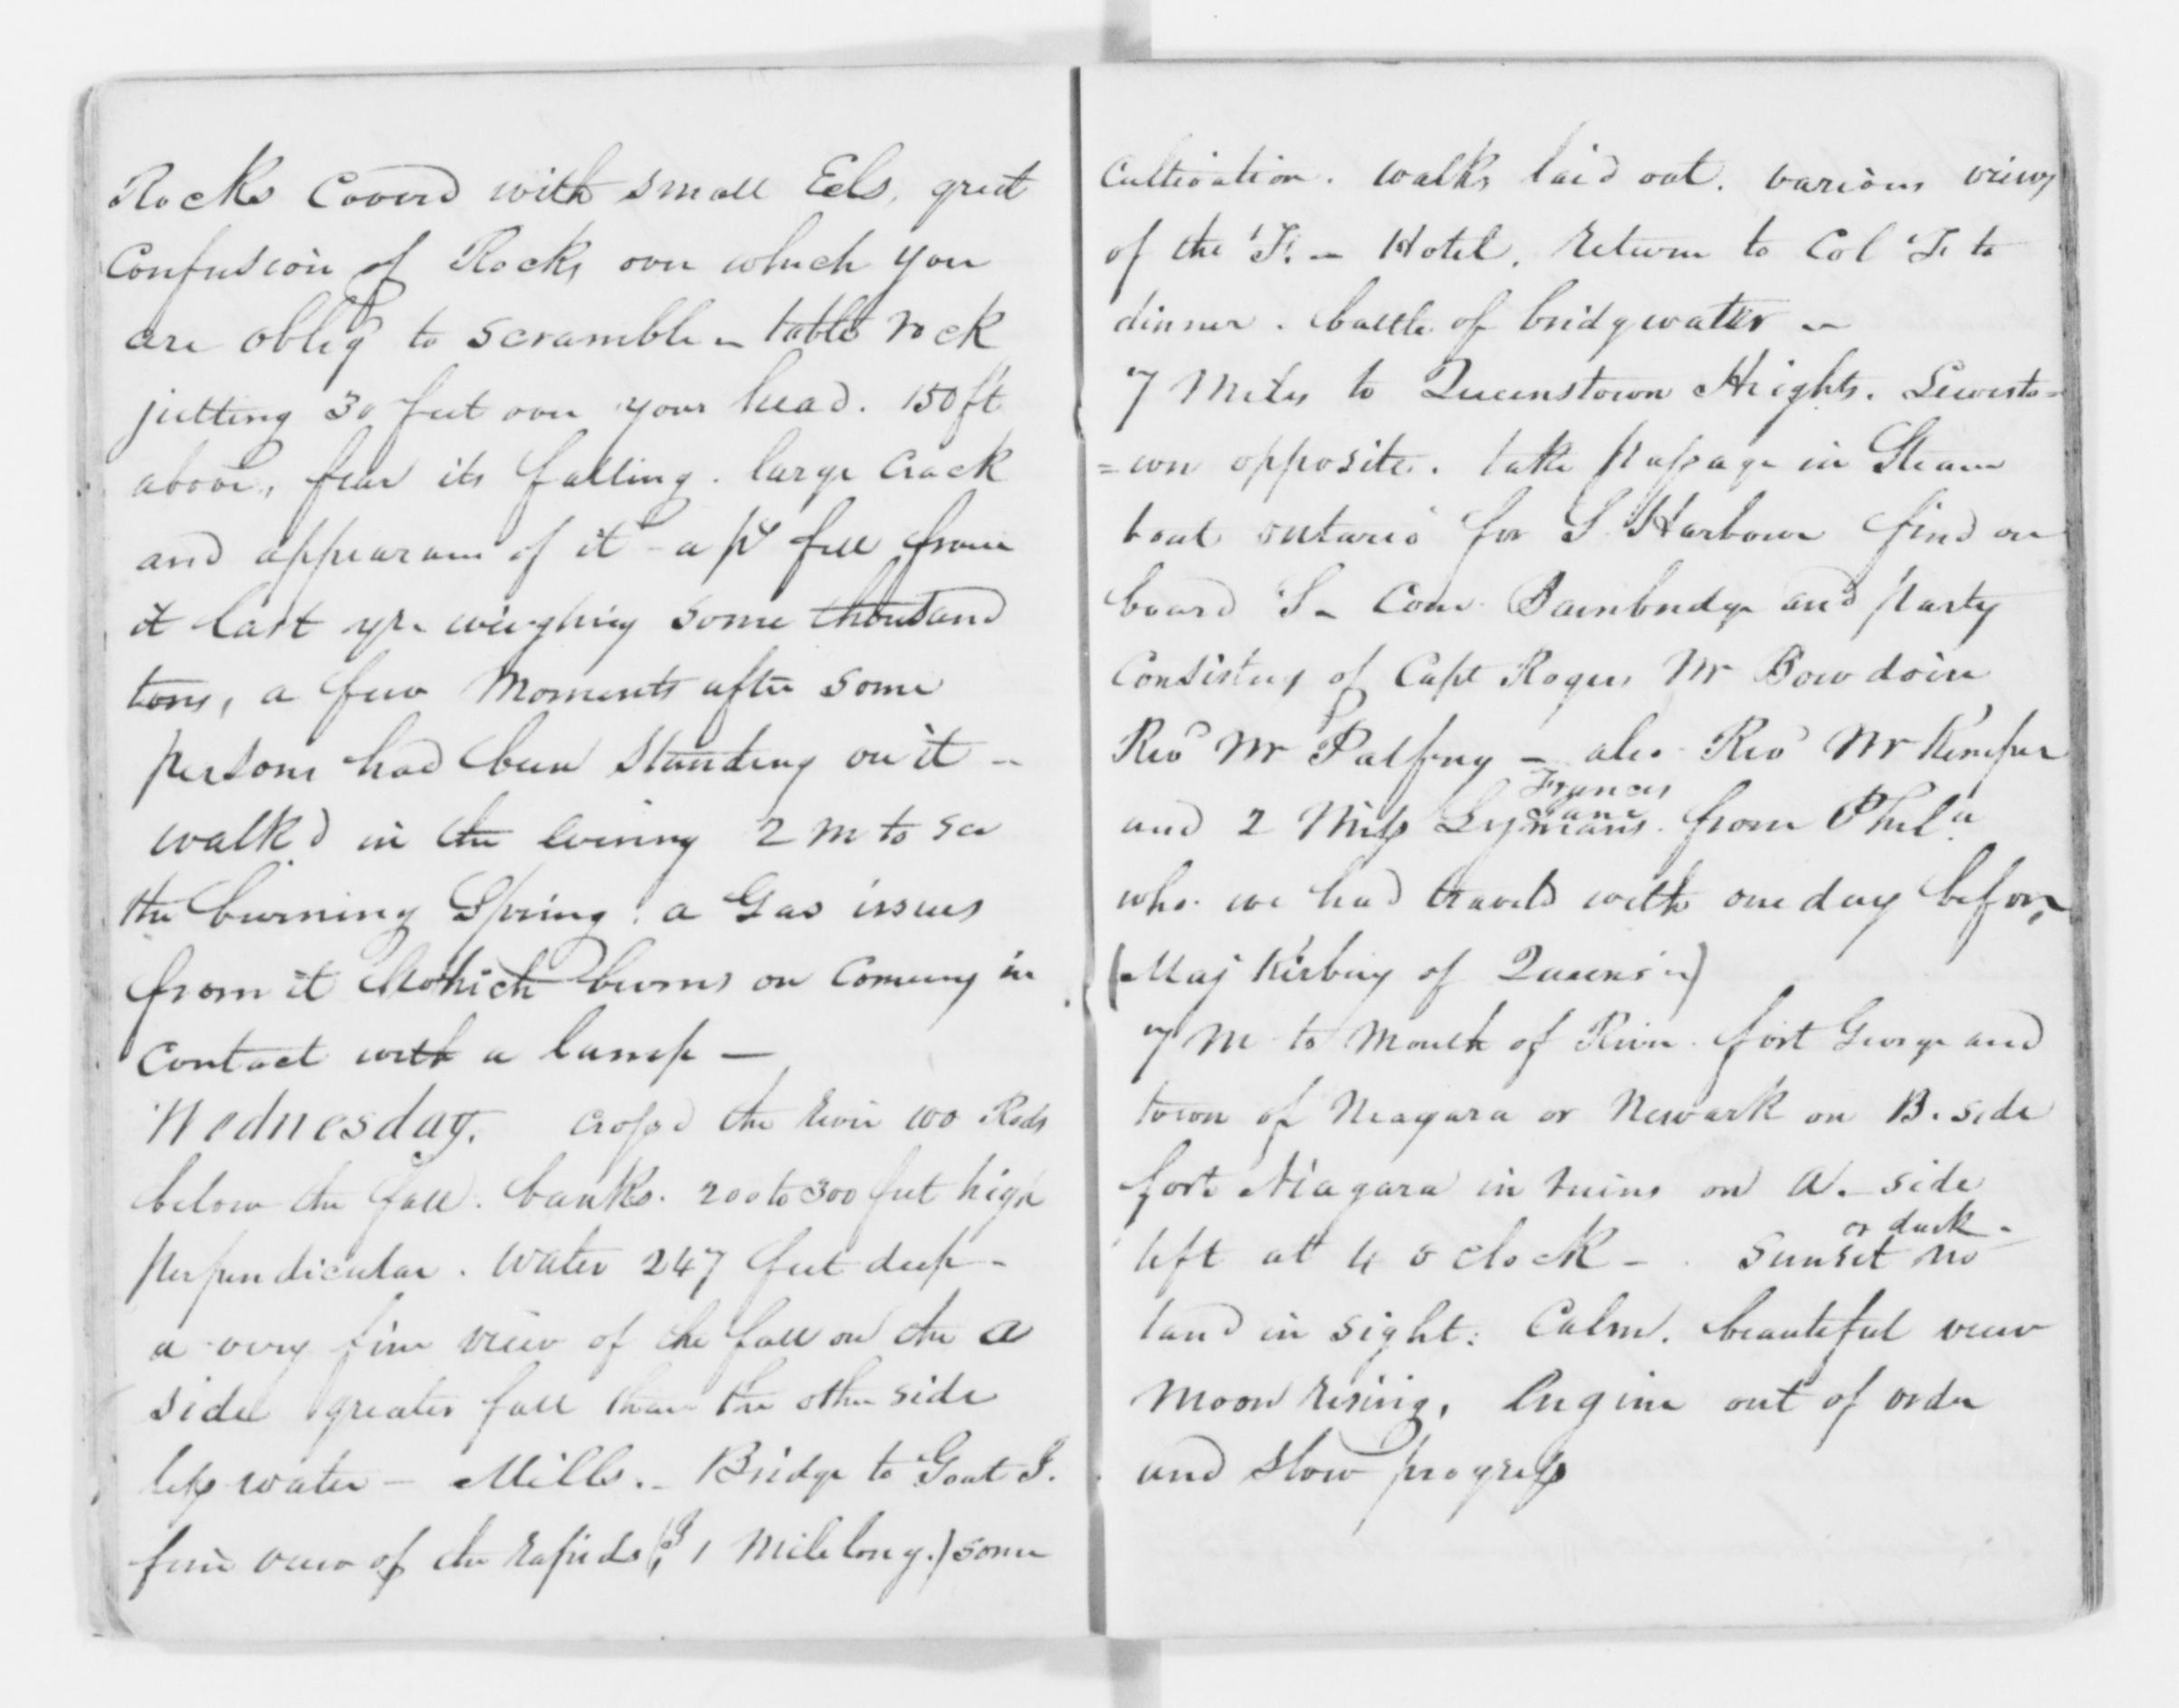 Rocks Coverd with small Eels, great
Confusion of Rocks over which you
are oblig'd to scramble – table rock
jutting 30 feet over your head. 150 ft
above, fear its falling. large crack
and appearance of it – a p^ce fell from
it last yr. weighing some thousand
tons, a few Moments after some
persons had been standing on it –
walk'd in the evening 2 m to see
the burning Spring. a Gas issues
from it which burns on Coming in
Contact with a lamp –
Wednesday. crossd the river 100 Rods
below the fall. banks. 200 to 300 feet high
perpendicular. Water 247 feet deep –
a very fine view of the fall on the A
side greater fall than the other side
less water – Mills. – Bridge to Goat I.
fine view of the rapids (I 1 Mile long.) some
Cultivation. walks laid out. various views
of the F. – Hotel. return to Col F to
dinner. battle of bridgwater –
7 Miles to Queenstown Heights. Lewisto=
=wn opposite. take passage in Steam
boat ontario for S. Harbour find on
board S – Com. Bainbridge and party
Consisting of Capt Rogers Mr Bowdoin
Revd Mr Palfrey – also Revd Mr Kemper
Frances
Jane
and 2 Miss Lymans from Phila
who we had traveld with one day before,
(Maj Kirbuy of Queens'n)
7 M to Mouth of River. fort George and
town of Niagara or Newark on B. side
fort Niagara in ruins on A. side
or dusk –
left at 4 o clock – . Sunset no
land in sight: Calm. beautiful view
Moon rising. Engine out of order
and slow progress